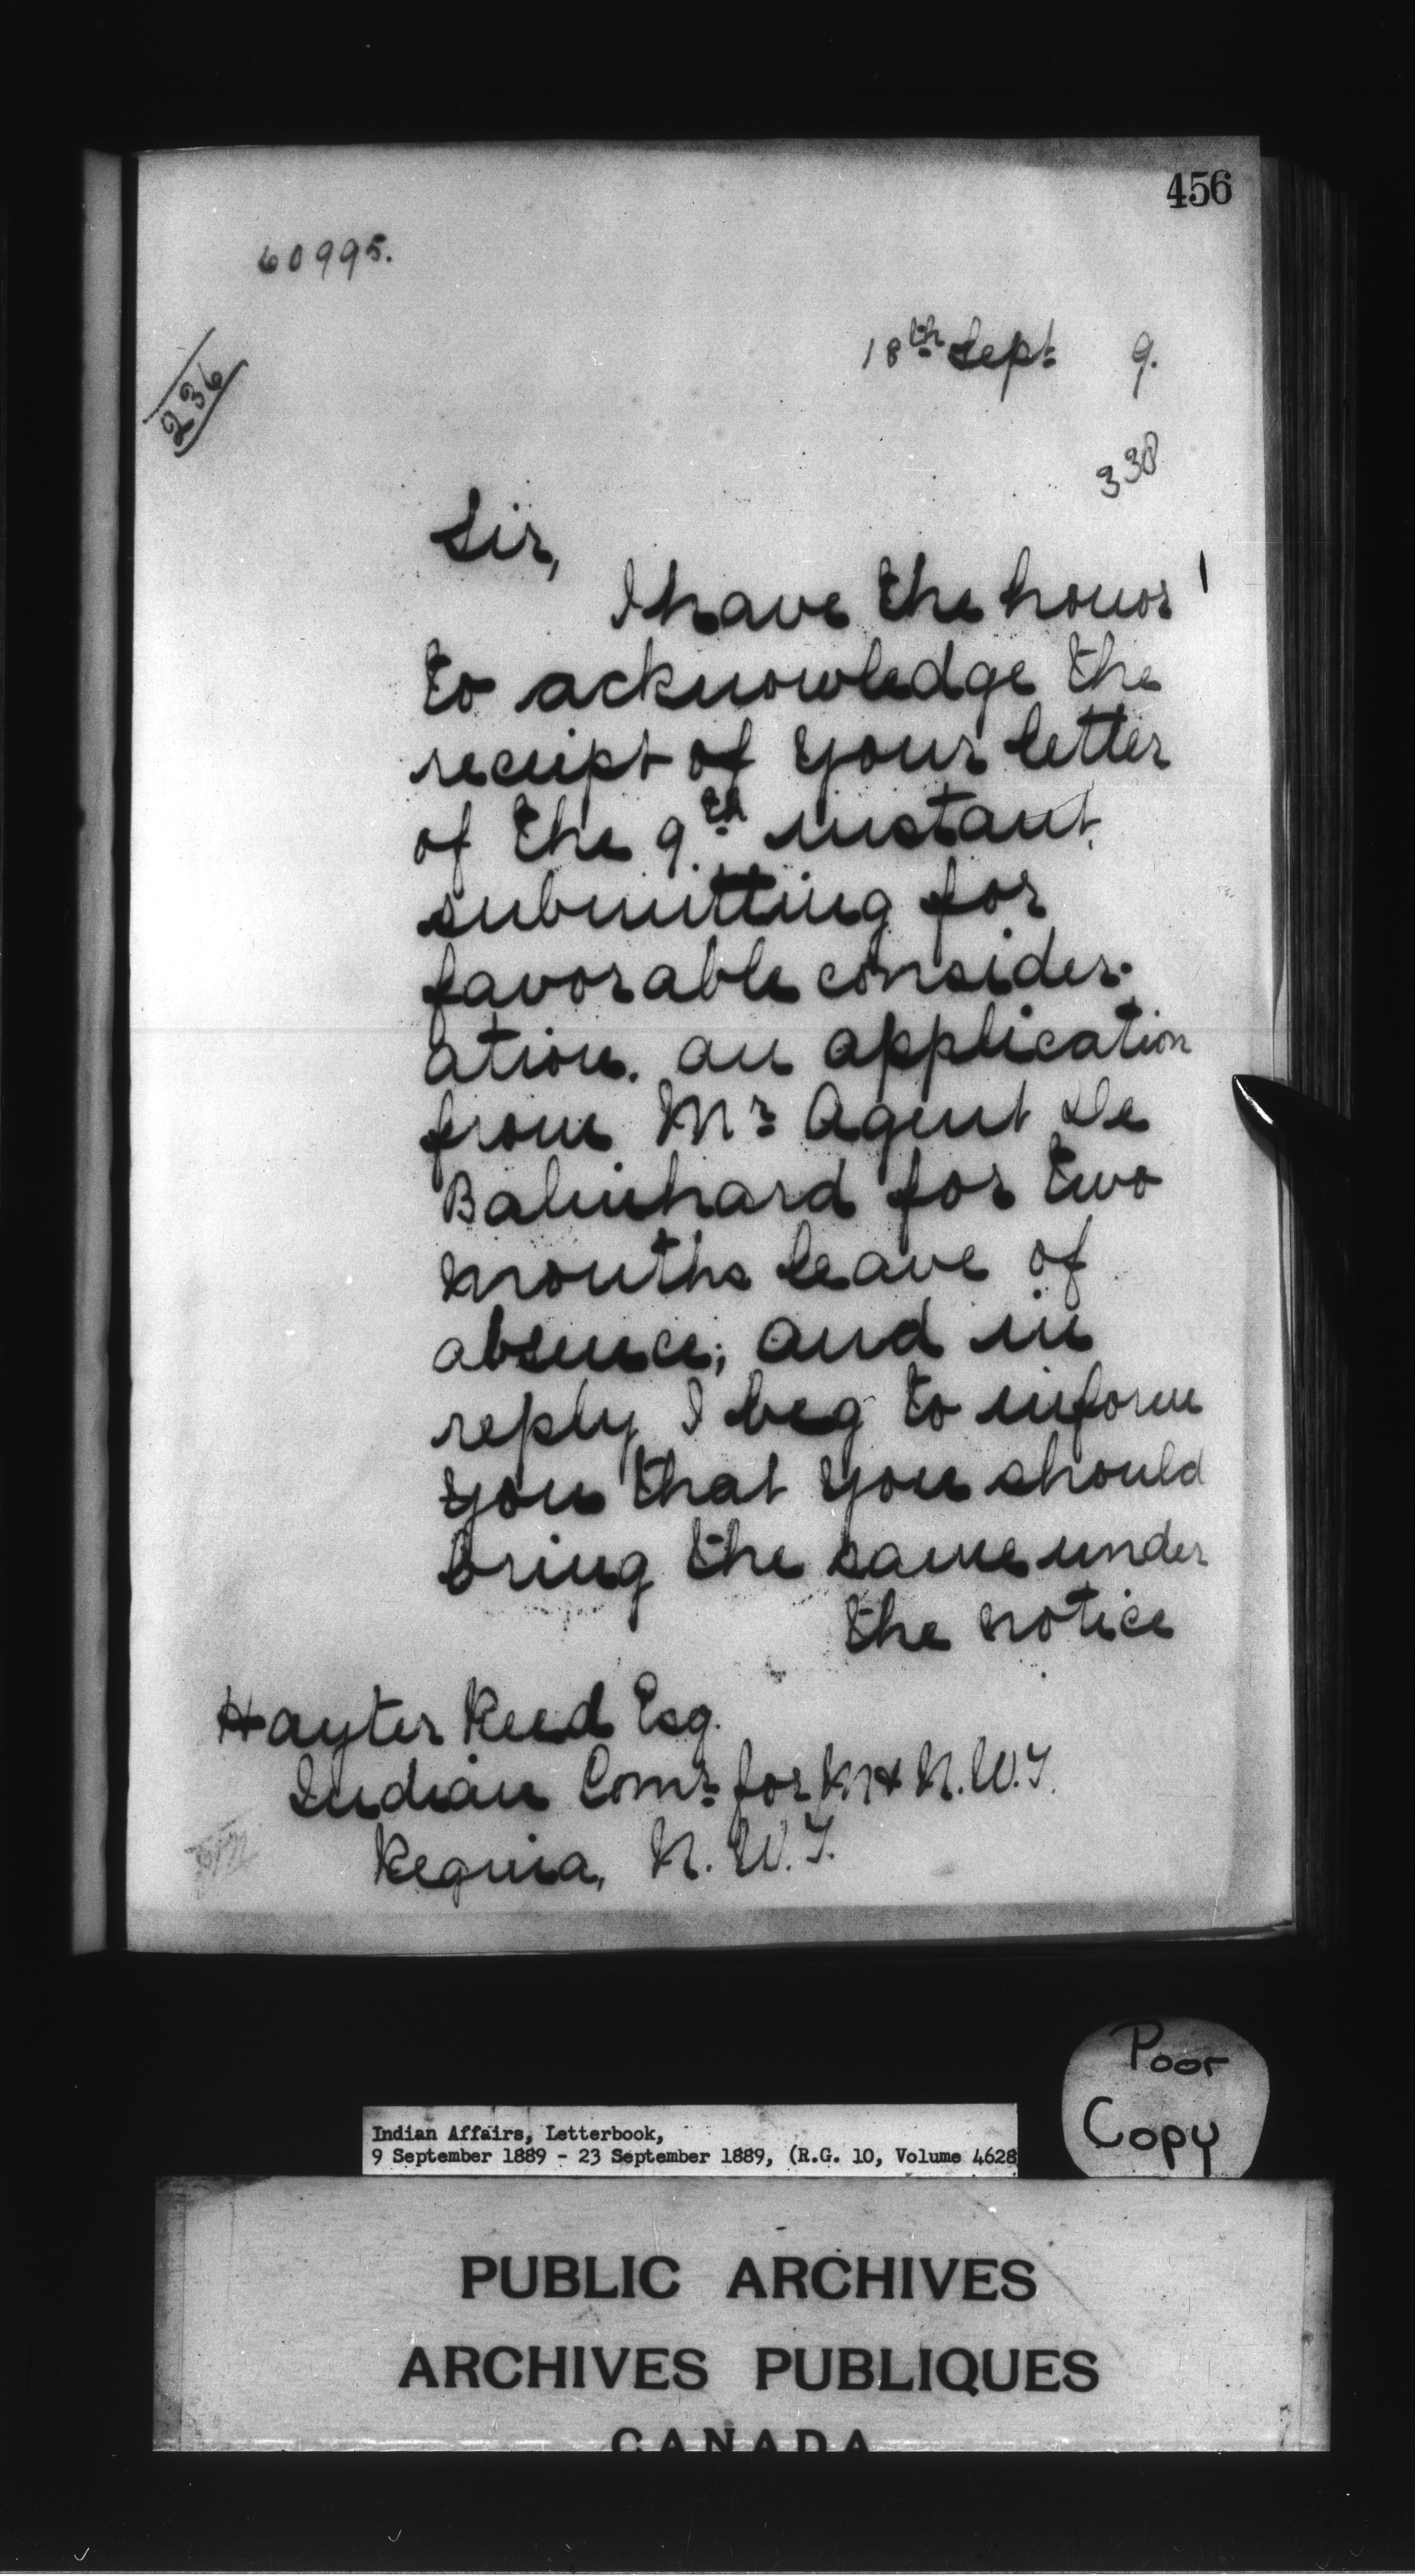 456
60995.
18th Sept 9.
236
338
Sir,
I have the honor
to acknowledge the
receipt of your letter
of the 9th instant,
submitting for
favorable consider-
ation. an application
from Mr Agent De
Balinhard for two
months leave of
absence; and in
reply I beg to inform
you that you should
bring the same under
the notice
Hayter Reed Esq.
Indian Comr for M & N.W.T.
Regina, N.W.T.
Poor
Copy
Indian Affairs, Letterbook,
9 September 1889 - 23 September 1889, (R.G. 10, Volume 4628
PUBLIC ARCHIVES
ARCHIVES PUBLIQUES
CANADA